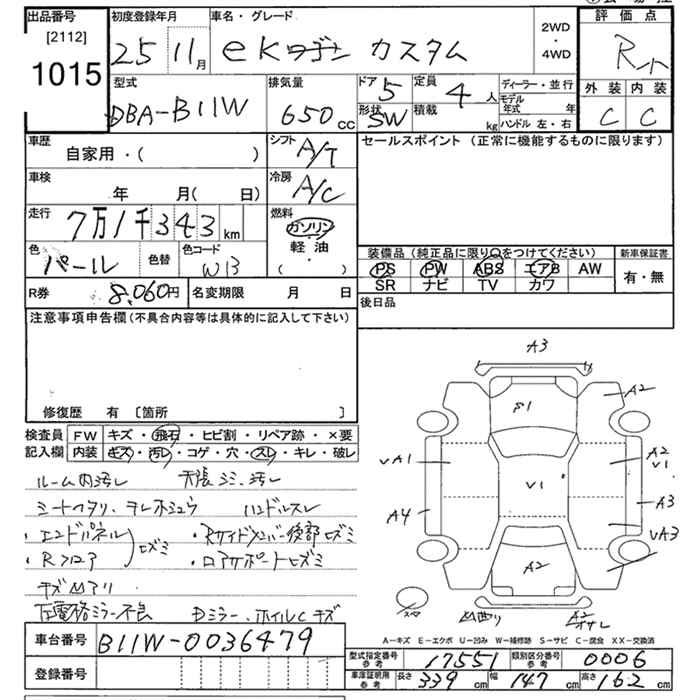 出品番号
[2112]
1015
初度登録年月
25 11月
車名・グレード
eKワゴン カスタム
2WD
・
4WD
評価点
外装 内装
C C
型式
DBA-B11W
排気量
650cc
ドア 5
定員 4人
形状 SW
積載 kg
ディーラー・並行
モデル年式 年
ハンドル 左・右
車歴
自家用・( )
シフト
A/T
セールスポイント (正常に機能するものに限ります)
車検
年 月( 日)
冷房
A/C
走行
7万1千343km
燃料
ガソリン
軽油
( ・ )
色
パール
色替
色コード
W13
装備品(純正品に限り〇をつけてください)
PS PW ABS エアB AW
SR ナビ TV カワ
新車保証書
有・無
R券
8,060円
名変期限 月 日
後日品
注意事項申告欄(不具合内容等は具体的に記入して下さい)
修復歴 有 [箇所 ]
検査員
記入欄
FW キズ・飛石・ヒビ割・リペア跡・×要
内装 キズ・汚レ・コゲ・穴・スレ・キレ・破レ
ルーム内汚レ 天張シミ、汚レ
シートヘタリ、 ハンドルスレ
・エンドパネル
・Rフロア
ヒズミ
・Rサイドメンバー後部ヒズミ
・ロアサポートヒズミ
キズ凹アリ
左電格ミラー不良 Dミラー、ホイルC キズ
A3
A2
F1
VA1
A2
V1
V1
A3
A4
VA3
A2
スペア
A-キズ E-エクボ U-凹み W-補修跡 S-サビ C-腐食 XX-交換済
車台番号
B11W-0036479
登録番号
型式指定番号
参考
17551
類別区分番号
参考
0006
車庫証明用
参考
長さ 339cm
幅 147cm
高さ 162cm